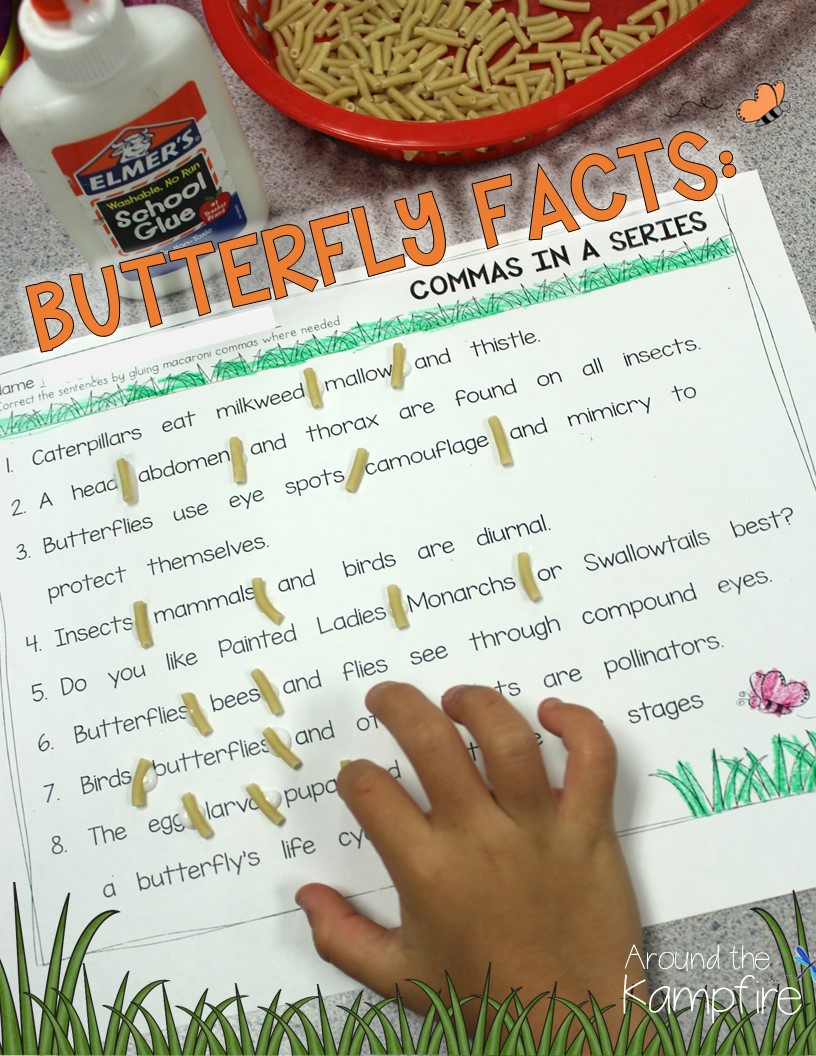 ELMER'S
Washable, No Run
School
Glue
#1 Teacher Brand
Non-Toxic
BUTTERFLY FACTS:
COMMAS IN A SERIES
Name
Correct the sentences by gluing macaroni commas where needed
1. Caterpillars eat milkweed mallow and thistle.
2. A head abdomen and thorax are found on all insects.
3. Butterflies use eye spots camouflage and mimicry to
protect themselves.
4. Insects mammals and birds are diurnal.
5. Do you like Painted Ladies Monarchs or Swallowtails best?
6. Butterflies bees and flies see through compound eyes.
7. Birds butterflies and are pollinators.
8. The egg larva pupa stages
a butterfly's life
Around the
Kampfire